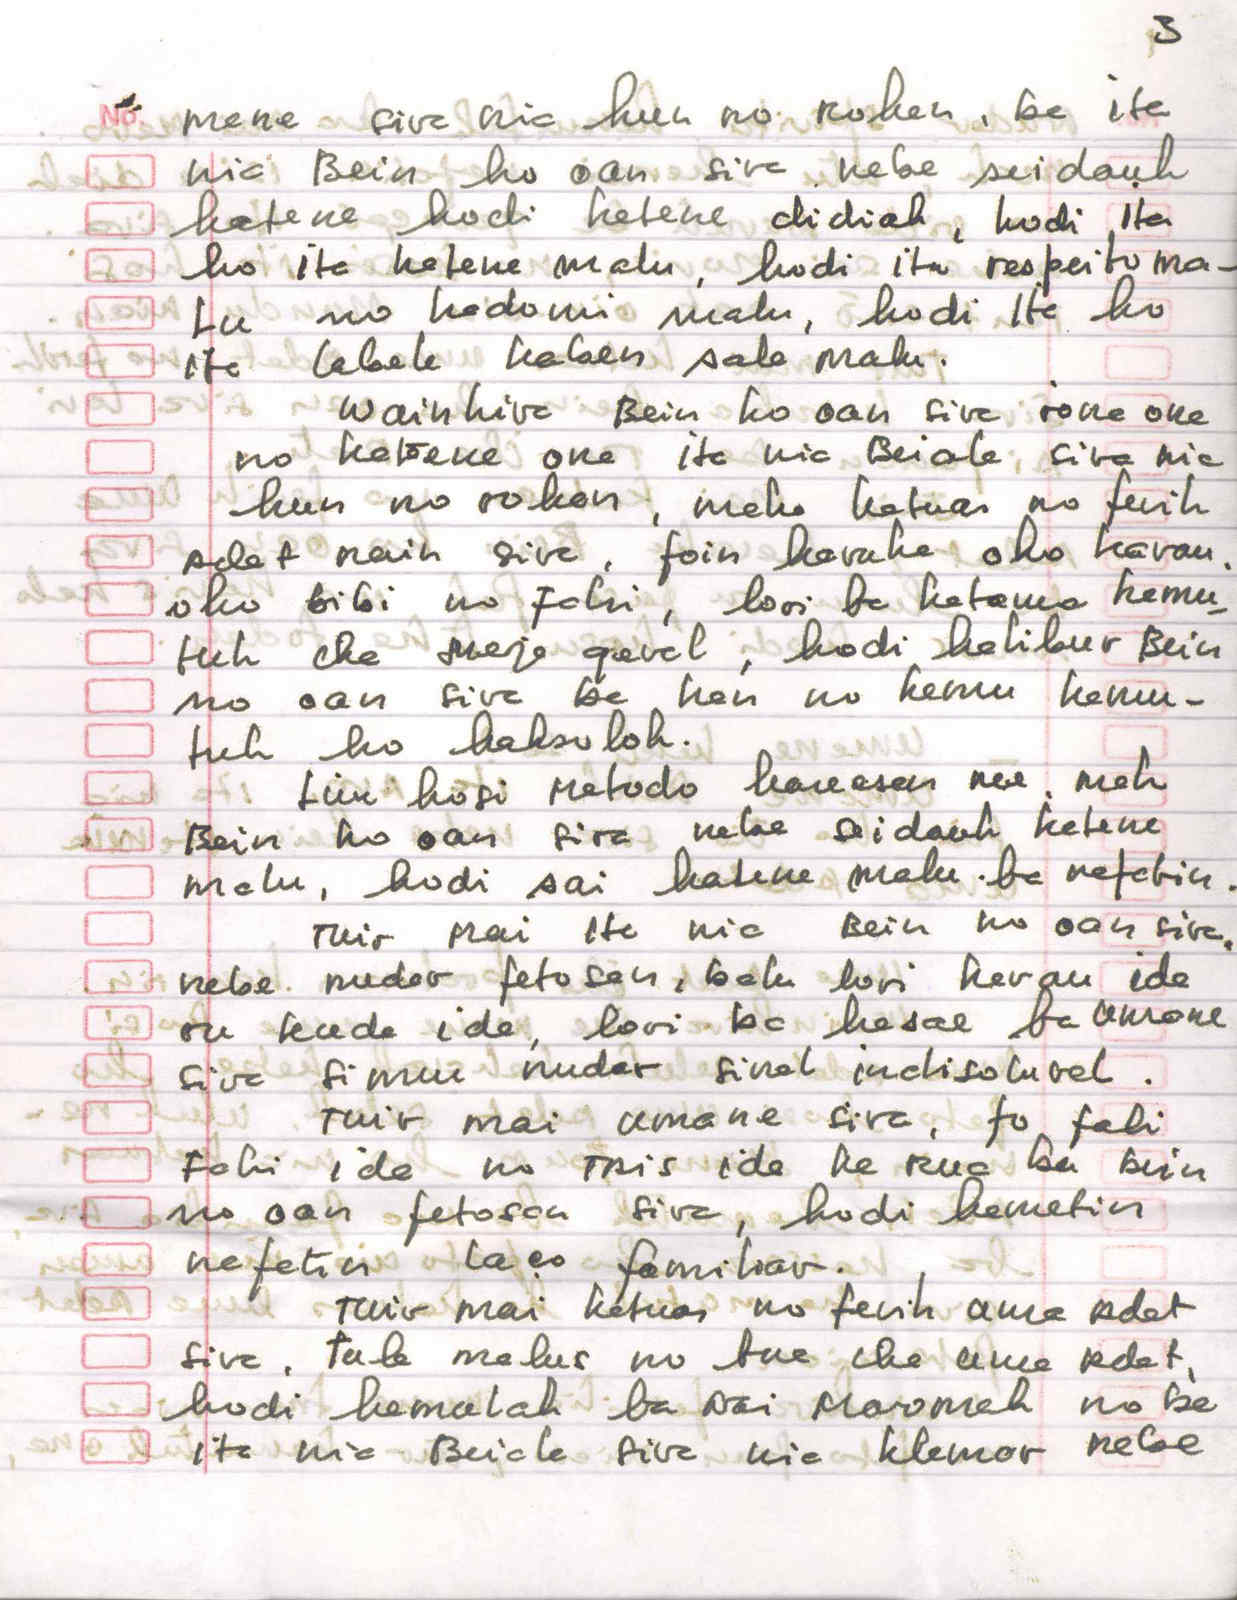 3
No. mane sira nia hun no rohan, ba ita
nia Bein ho oan sira nebe seidauh
hatene hodi hatene didiah, hodi Ita
ho ita hatene malu, hodi ita respeito ma-
Lu no hadomi malu, hodi Ita ho
ita labele haben sala malu.
Wainhira Bein ho oan sira rona ona
no hatene ona ita nia Beiala, sira nia
hun no rohan, maka katuas no ferih
Adat nain sira, foin haruka oho karau,
oho bibi no Fahi, lori ba hatama hamu-
tuh iha meja geral, hodi halibur Bein
no oan sira ba han no hemu hamu-
tuh ho haksoloh.
Liu hosi Metodo hanesan ne'e, mah
Bein ho oan sira nebe seidauh hatene
malu, hodi sai hatene malu ba nafatin.
Tuir mai ita nia Bein no oan sira,
nebe nudar fetosan, balu lori karau ida
ou kuda ida, lori ba hasae ba Umane
sira simu nudar sinal indisoluvel.
Tuir mai umane sira, fo fali
Fahi ida no Tais ida ka rua ba Bein
no oan fetosan sira, hodi hametin
nafatin laço familiar.
Tuir mai katuas no ferih uma Adat
sira, tula malus no tua iha uma Adat,
hodi hamulah ba Nai Maromah no ba
ita nia Beiala sira nia klamar nebe